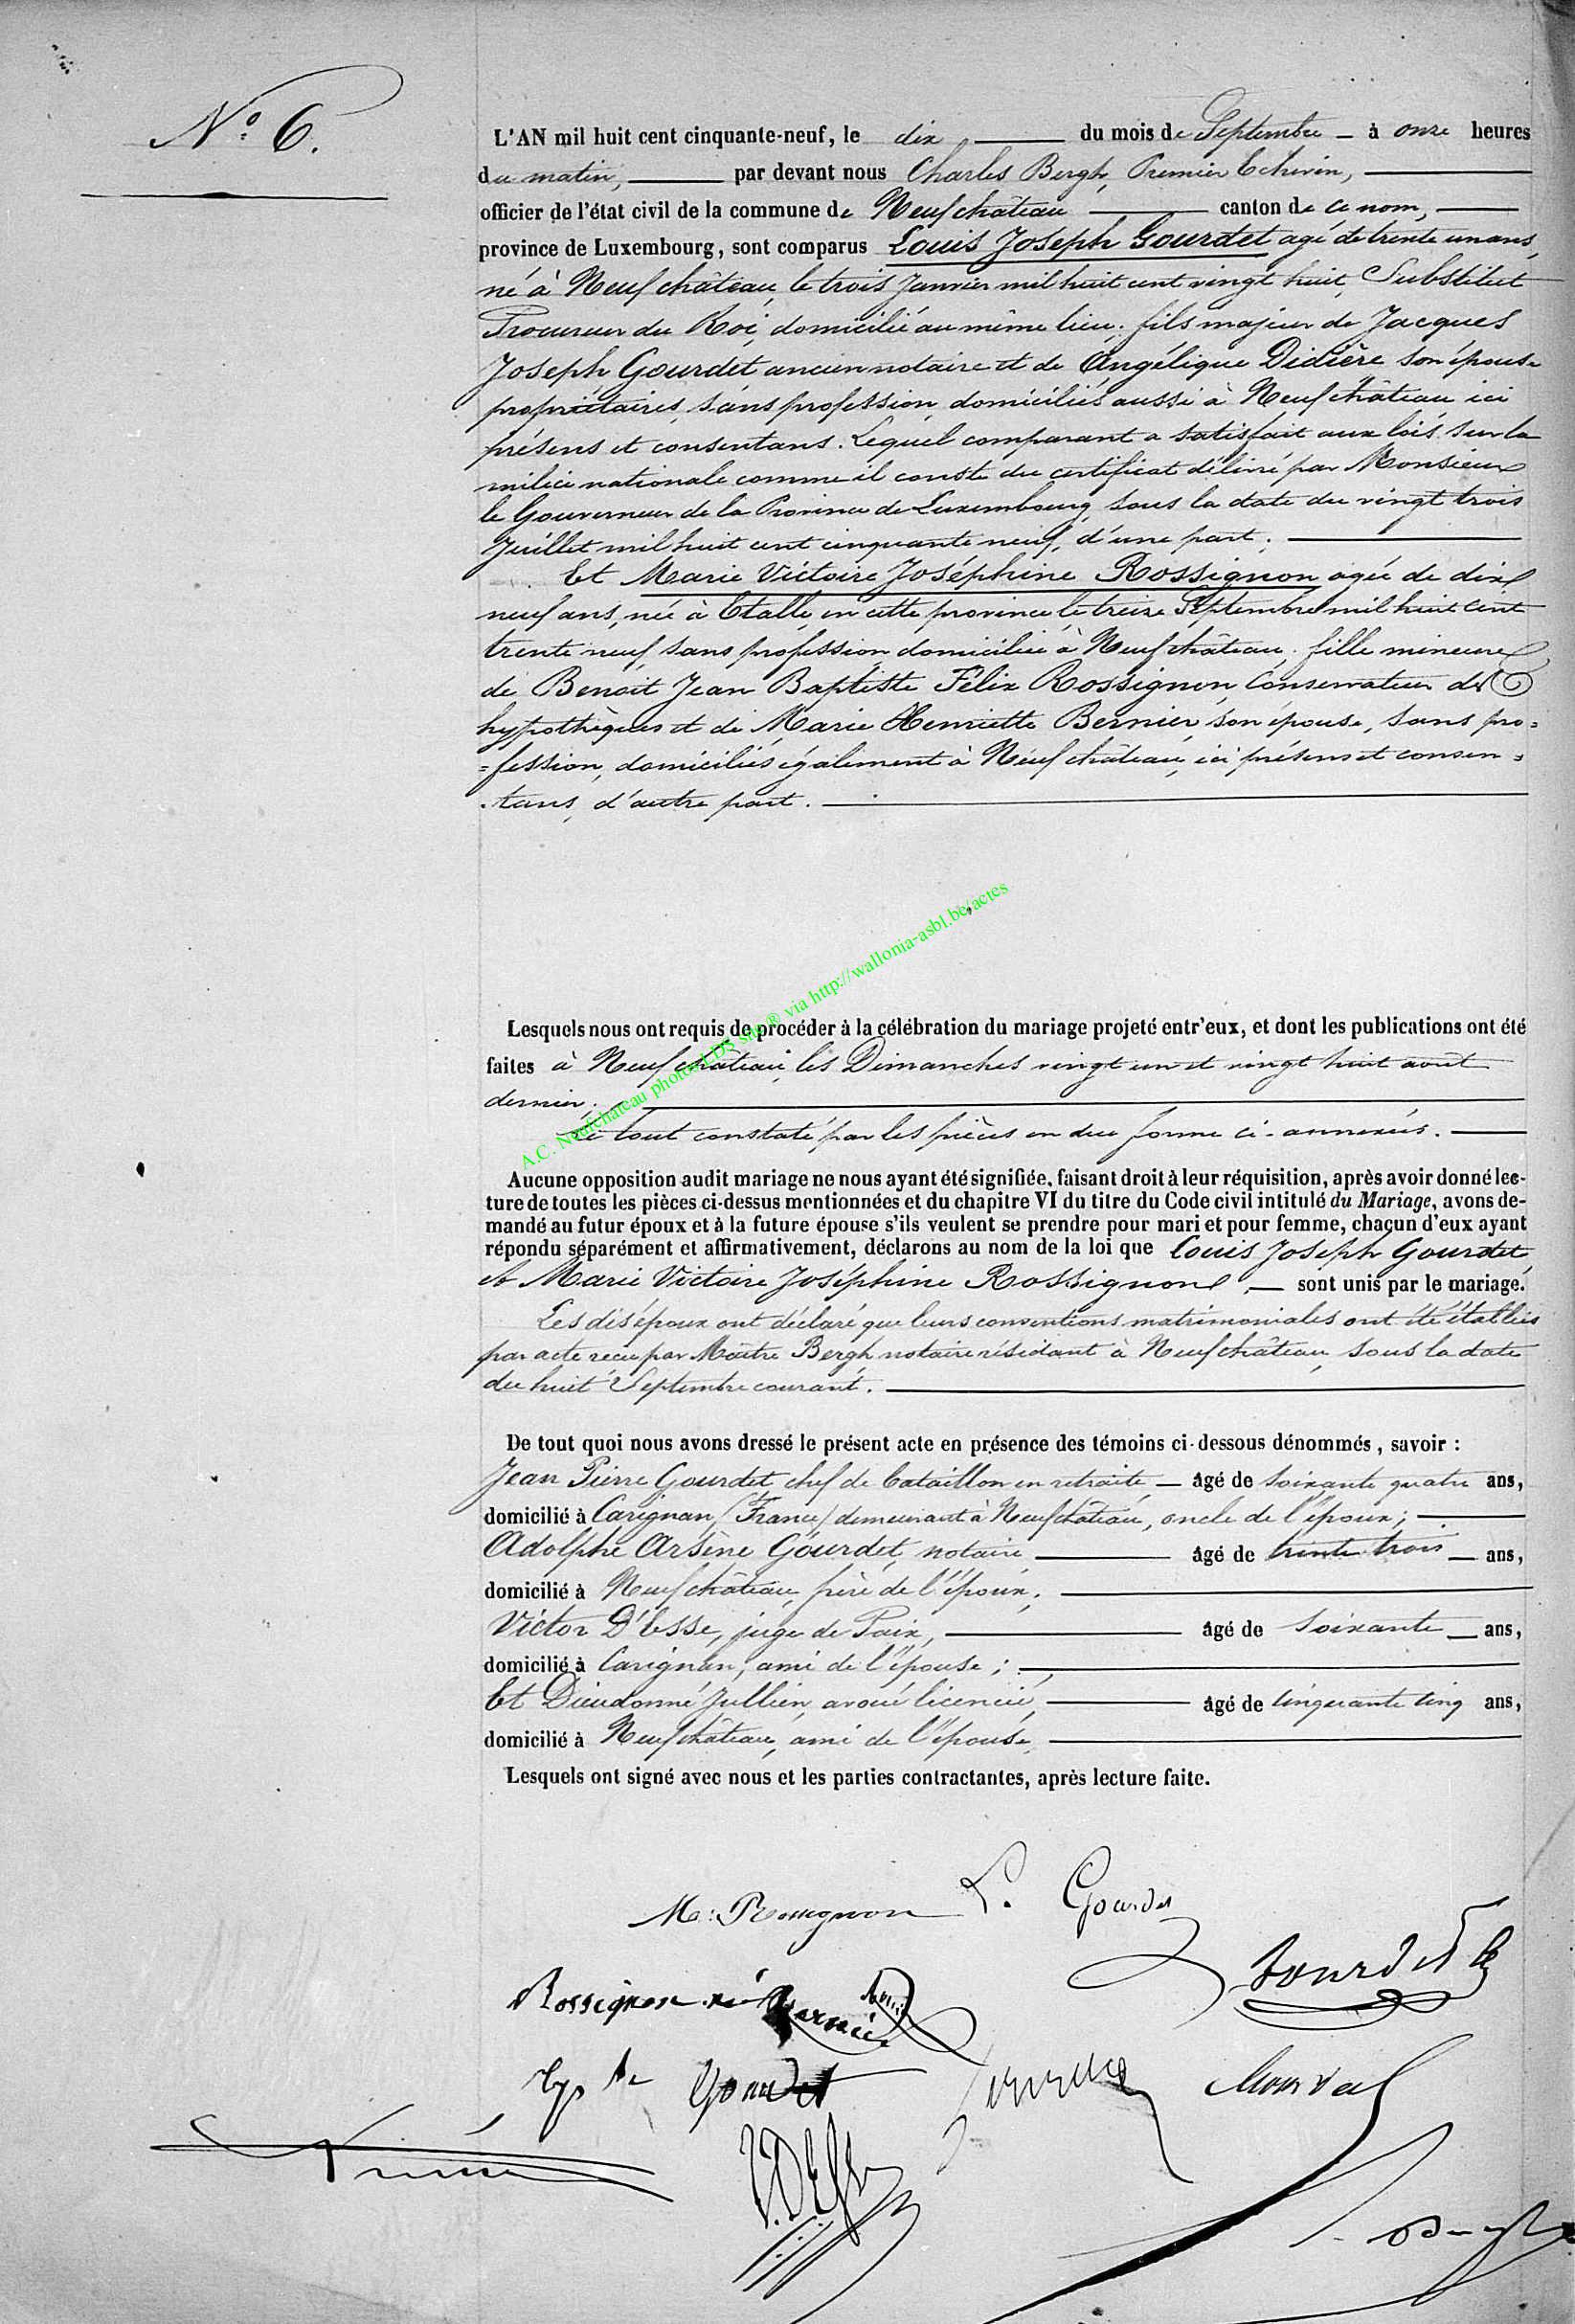 N° 6.
L'AN mil huit cent cinquante-neuf, le dix du mois de Septembre à onze heures
du matin, par devant nous Charles Bergh, Premier Echevin,
officier de l'état civil de la commune de Neufchâteau canton de ce nom,
province de Luxembourg, sont comparus Louis Joseph Gourdet agé de trente un ans,
né à Neufchâteau, le trois Janvier mil huit cent vingt huit, Substitut
Procureur du Roi, domicilié au même lieu; fils majeur de Jacques
Joseph Gourdet ancien notaire et de Angélique Didière son épouse
propriétaires, sans profession, domiciliés aussi à Neufchâteau ici
présens et consentans. Lequel comparant a satisfait aux lois sur la
milice nationale comme il conste du certificat délivré par Monsieur
le Gouverneur de la Province de Luxembourg, sous la date du vingt trois
Juillet mil huit cent cinquante neuf, d'une part;
Et Marie Victoire Joséphine Rossignon agée de dix
neuf ans, née à Etalle, en cette province, le treize Septembre mil huit cent
trente neuf, sans profession, domiciliée à Neufchâteau; fille mineure
de Benoit Jean Baptiste Félix Rossignon, Conservateur des
hypothèques et de Marie Henriette Bernier, son épouse, sans pro=
=fession, domiciliés également à Neufchâteau, ici présens et consen=
tans, d'autre part.
A.C. Neufchateau photos LDS site ® via http://wallonia-asbl.be/actes
Lesquels nous ont requis de procéder à la célébration du mariage projeté entr'eux, et dont les publications ont été
faites à Neufchâteau, les Dimanches vingt un et vingt huit août
dernier;
Le tout constaté par les pièces en due forme ci-annexées.
Aucune opposition audit mariage ne nous ayant été signifiée, faisant droit à leur réquisition, après avoir donné lec-
ture de toutes les pièces ci-dessus mentionnées et du chapitre VI du titre du Code civil intitulé du Mariage, avons de-
mandé au futur époux et à la future épouse s'ils veulent se prendre pour mari et pour femme, chacun d'eux ayant
répondu séparément et affirmativement, déclarons au nom de la loi que Louis Joseph Gourdet
et Marie Victoire Joséphine Rossignon, sont unis par le mariage.
Les dis époux ont déclaré que leurs conventions matrimoniales ont été établies
par acte reçu par Maître Bergh, notaire résidant à Neufchâteau, sous la date
du huit Septembre courant.
De tout quoi nous avons dressé le présent acte en présence des témoins ci-dessous dénommés, savoir :
Jean Pierre Gourdet, chef de bataillon en retraite, âgé de soixante quatre ans,
domicilié à Carignan, (France) demeurant à Neufchâteau, oncle de l'époux;
Adolphe Arsène Gourdet, notaire, âgé de trente trois ans,
domicilié à Neufchâteau, frère de l'époux;
Victor D'Esse, juge de Paix, âgé de soixante ans,
domicilié à Carignan, ami de l'épouse;
Et Dieudonné Jullien, avoué licencié, âgé de cinquante cinq ans,
domicilié à Neufchâteau, ami de l'épouse.
Lesquels ont signé avec nous et les parties contractantes, après lecture faite.
M: Rossignon L. Gourdet
Rossignon née Bernier Gourdet
Gourdet
V. D'Esse